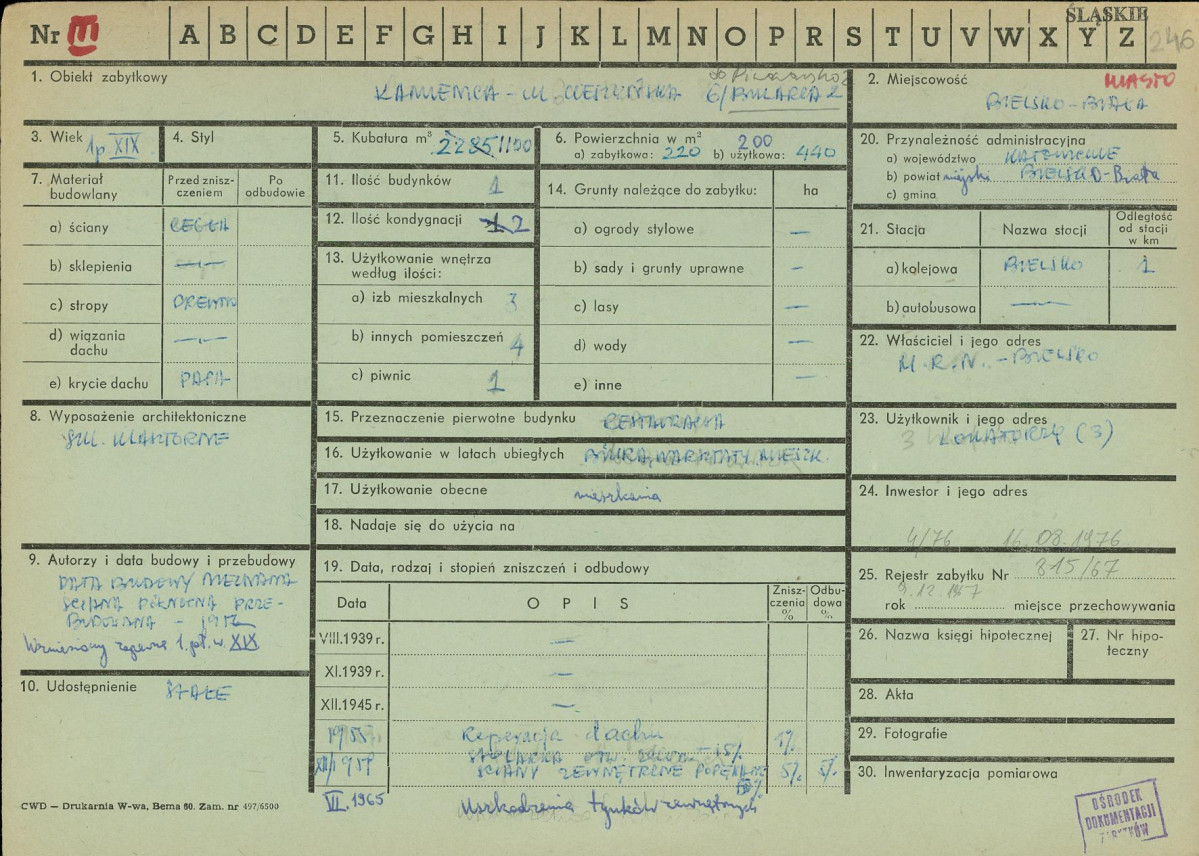 ŚLĄSKIE
Nr III A B C D E F G H I J K L M N O P R S T U V W X Y Z 246
1. Obiekt zabytkowy
KAMIENICA – UL. 6/
2. Miejscowość MIASTO
BIELSKO-BIAŁA
3. Wiek 1 p. XIX
4. Styl
5. Kubatura m³ 2285 1100
6. Powierzchnia w m² 200
a) zabytkowa: 220 b) użytkowa: 440
20. Przynależność administracyjna
a) województwo KATOWICKIE
b) powiat miejski BIELSKO-Biała
c) gmina
7. Materiał budowlany
Przed zniszczeniem
Po odbudowie
a) ściany CEGŁA
b) sklepienia —
c) stropy DREWNO
d) wiązania dachu —
e) krycie dachu PAPA
11. Ilość budynków 1
12. Ilość kondygnacji 1 2
13. Użytkowanie wnętrza według ilości:
a) izb mieszkalnych 3
b) innych pomieszczeń 4
c) piwnic 1
14. Grunty należące do zabytku: ha
a) ogrody stylowe —
b) sady i grunty uprawne —
c) lasy —
d) wody —
e) inne —
21. Stacja
Nazwa stacji
Odległość od stacji w km
a) kolejowa BIELSKO 1
b) autobusowa —
22. Właściciel i jego adres
M.R.N. – BIELSKO
8. Wyposażenie architektoniczne
15. Przeznaczenie pierwotne budynku RESTAURACJA
16. Użytkowanie w latach ubiegłych BIURA, WARSZTATY, MIESZK.
17. Użytkowanie obecne mieszkania
18. Nadaje się do użycia na
23. Użytkownik i jego adres
LOKATORZY (3)
24. Inwestor i jego adres
4/76 16.08.1976
9. Autorzy i data budowy i przebudowy
DATA BUDOWY NIEZNANA
ŚCIANA PÓŁNOCNA PRZE-
BUDOWANA –
Wzniesiony zapewne 1. poł. w. XIX
19. Data, rodzaj i stopień zniszczeń i odbudowy
Data
OPIS
Zniszczenia %
Odbudowa %
VIII.1939 r. —
XI.1939 r. —
XII.1945 r. —
1955 Reperacja dachu 1%
STOLARKA OTW. 15%
ŚCIANY ZEWNĘTRZNE POPĘKANE 5% 5%
VI.1965 Uszkodzenia tynków zewnętrznych
25. Rejestr zabytku Nr 815/67
rok 9.12.1967 miejsce przechowywania
26. Nazwa księgi hipotecznej
27. Nr hipoteczny
10. Udostępnienie STAŁE
28. Akta
29. Fotografie
30. Inwentaryzacja pomiarowa
CWD — Drukarnia W-wa, Bema 60. Zam. nr 497/6500
OŚRODEK
DOKUMENTACJI
ZABYTKÓW